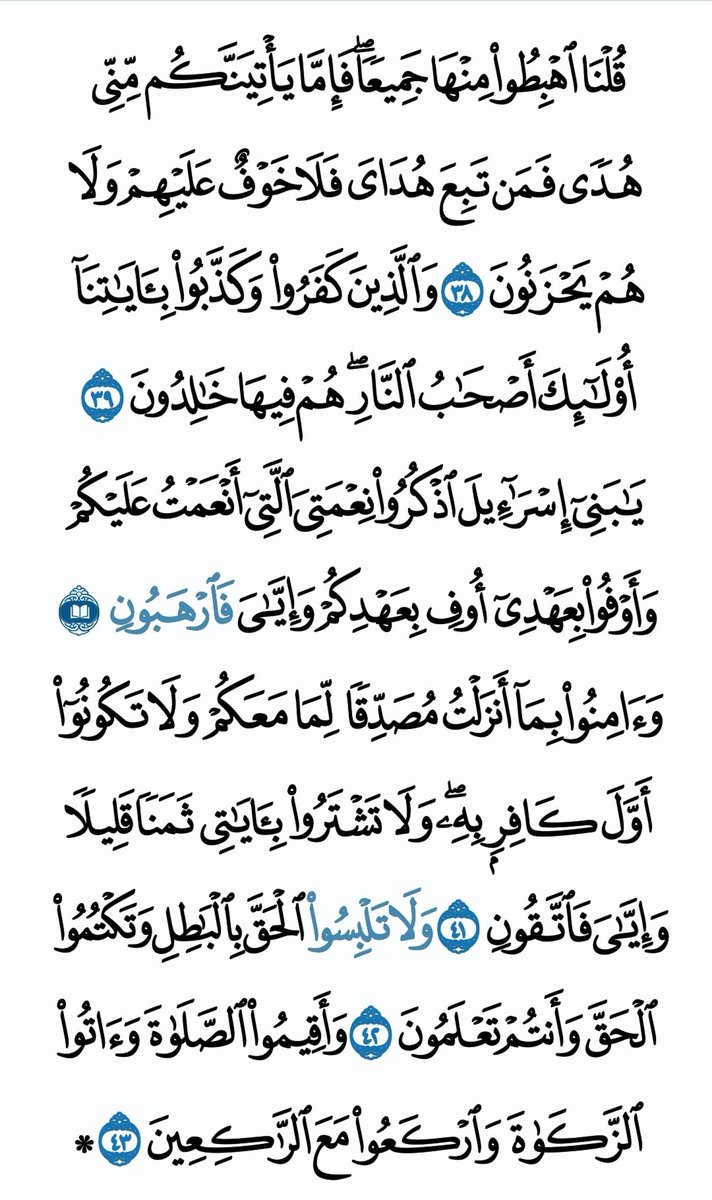 قُلْنَا ٱهْبِطُوا۟ مِنْهَا جَمِيعًۭا ۖ فَإِمَّا يَأْتِيَنَّكُم مِّنِّى
هُدًۭى فَمَن تَبِعَ هُدَاىَ فَلَا خَوْفٌ عَلَيْهِمْ وَلَا
هُمْ يَحْزَنُونَ ٣٨ وَٱلَّذِينَ كَفَرُوا۟ وَكَذَّبُوا۟ بِـَٔايَـٰتِنَآ
أُو۟لَـٰٓئِكَ أَصْحَـٰبُ ٱلنَّارِ ۖ هُمْ فِيهَا خَـٰلِدُونَ ٣٩
يَـٰبَنِىٓ إِسْرَٰٓءِيلَ ٱذْكُرُوا۟ نِعْمَتِىَ ٱلَّتِىٓ أَنْعَمْتُ عَلَيْكُمْ
وَأَوْفُوا۟ بِعَهْدِىٓ أُوفِ بِعَهْدِكُمْ وَإِيَّـٰىَ فَٱرْهَبُونِ
وَءَامِنُوا۟ بِمَآ أَنزَلْتُ مُصَدِّقًۭا لِّمَا مَعَكُمْ وَلَا تَكُونُوٓا۟
أَوَّلَ كَافِرٍۭ بِهِۦ ۖ وَلَا تَشْتَرُوا۟ بِـَٔايَـٰتِى ثَمَنًۭا قَلِيلًۭا
وَإِيَّـٰىَ فَٱتَّقُونِ ٤١ وَلَا تَلْبِسُوا۟ ٱلْحَقَّ بِٱلْبَـٰطِلِ وَتَكْتُمُوا۟
ٱلْحَقَّ وَأَنتُمْ تَعْلَمُونَ ٤٢ وَأَقِيمُوا۟ ٱلصَّلَوٰةَ وَءَاتُوا۟
ٱلزَّكَوٰةَ وَٱرْكَعُوا۟ مَعَ ٱلرَّٰكِعِينَ ٤٣ *